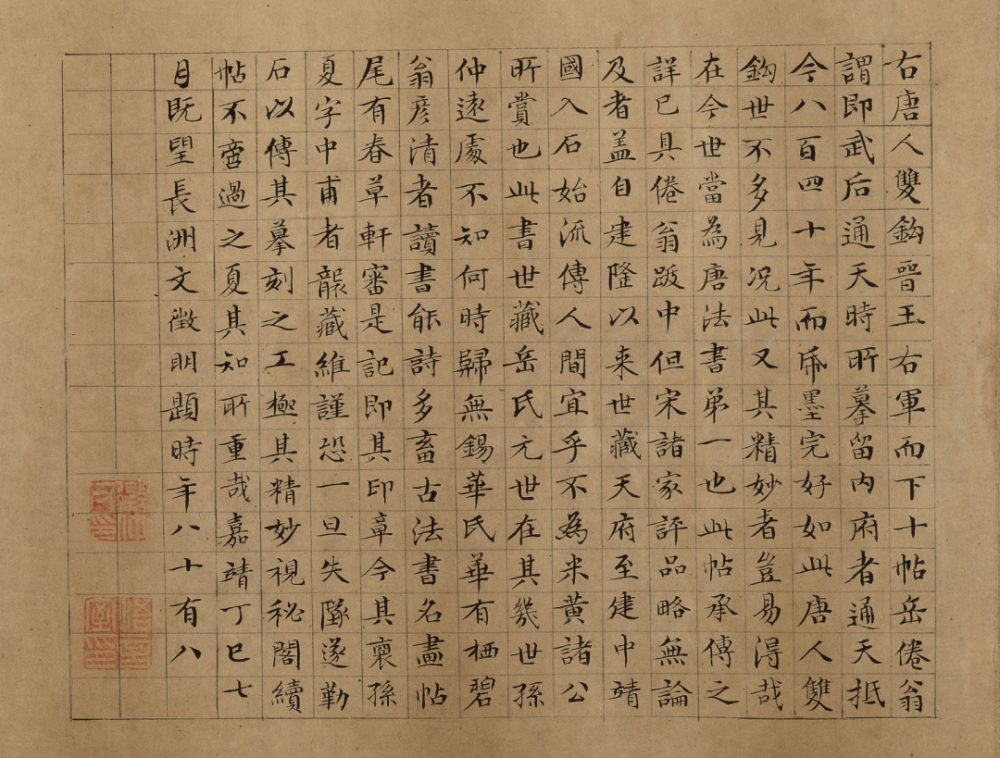 右唐人雙鈎晉王右軍而下十帖岳倦翁
謂即武后通天時所摹留内府者通天抵
今八百四十年而帋墨完好如此唐人雙
鈎世不多見况此又其精妙者豈易淂哉
在今世當為唐法書弟一也此帖承傳之
詳已具倦翁跋中但宋諸家評品略無論
及者盖自建隆以来世藏天府至建中靖
國入石始流傳人間宜乎不為米黄諸公
所賞也此書世藏岳氏元世在其幾世孫
仲遠處不知何時歸無錫華氏華有栖碧
翁彦清者讀書能詩多畜古法書名畫帖
尾有春草軒審是記即其印章今其裔孫
夏字中甫者襲藏維謹恐一旦失墬遂勒
石以傳其摹刻之工極其精妙視秘閣續
帖不啻過之夏其知所重哉嘉靖丁巳七
月既望長洲文徵明題時年八十有八